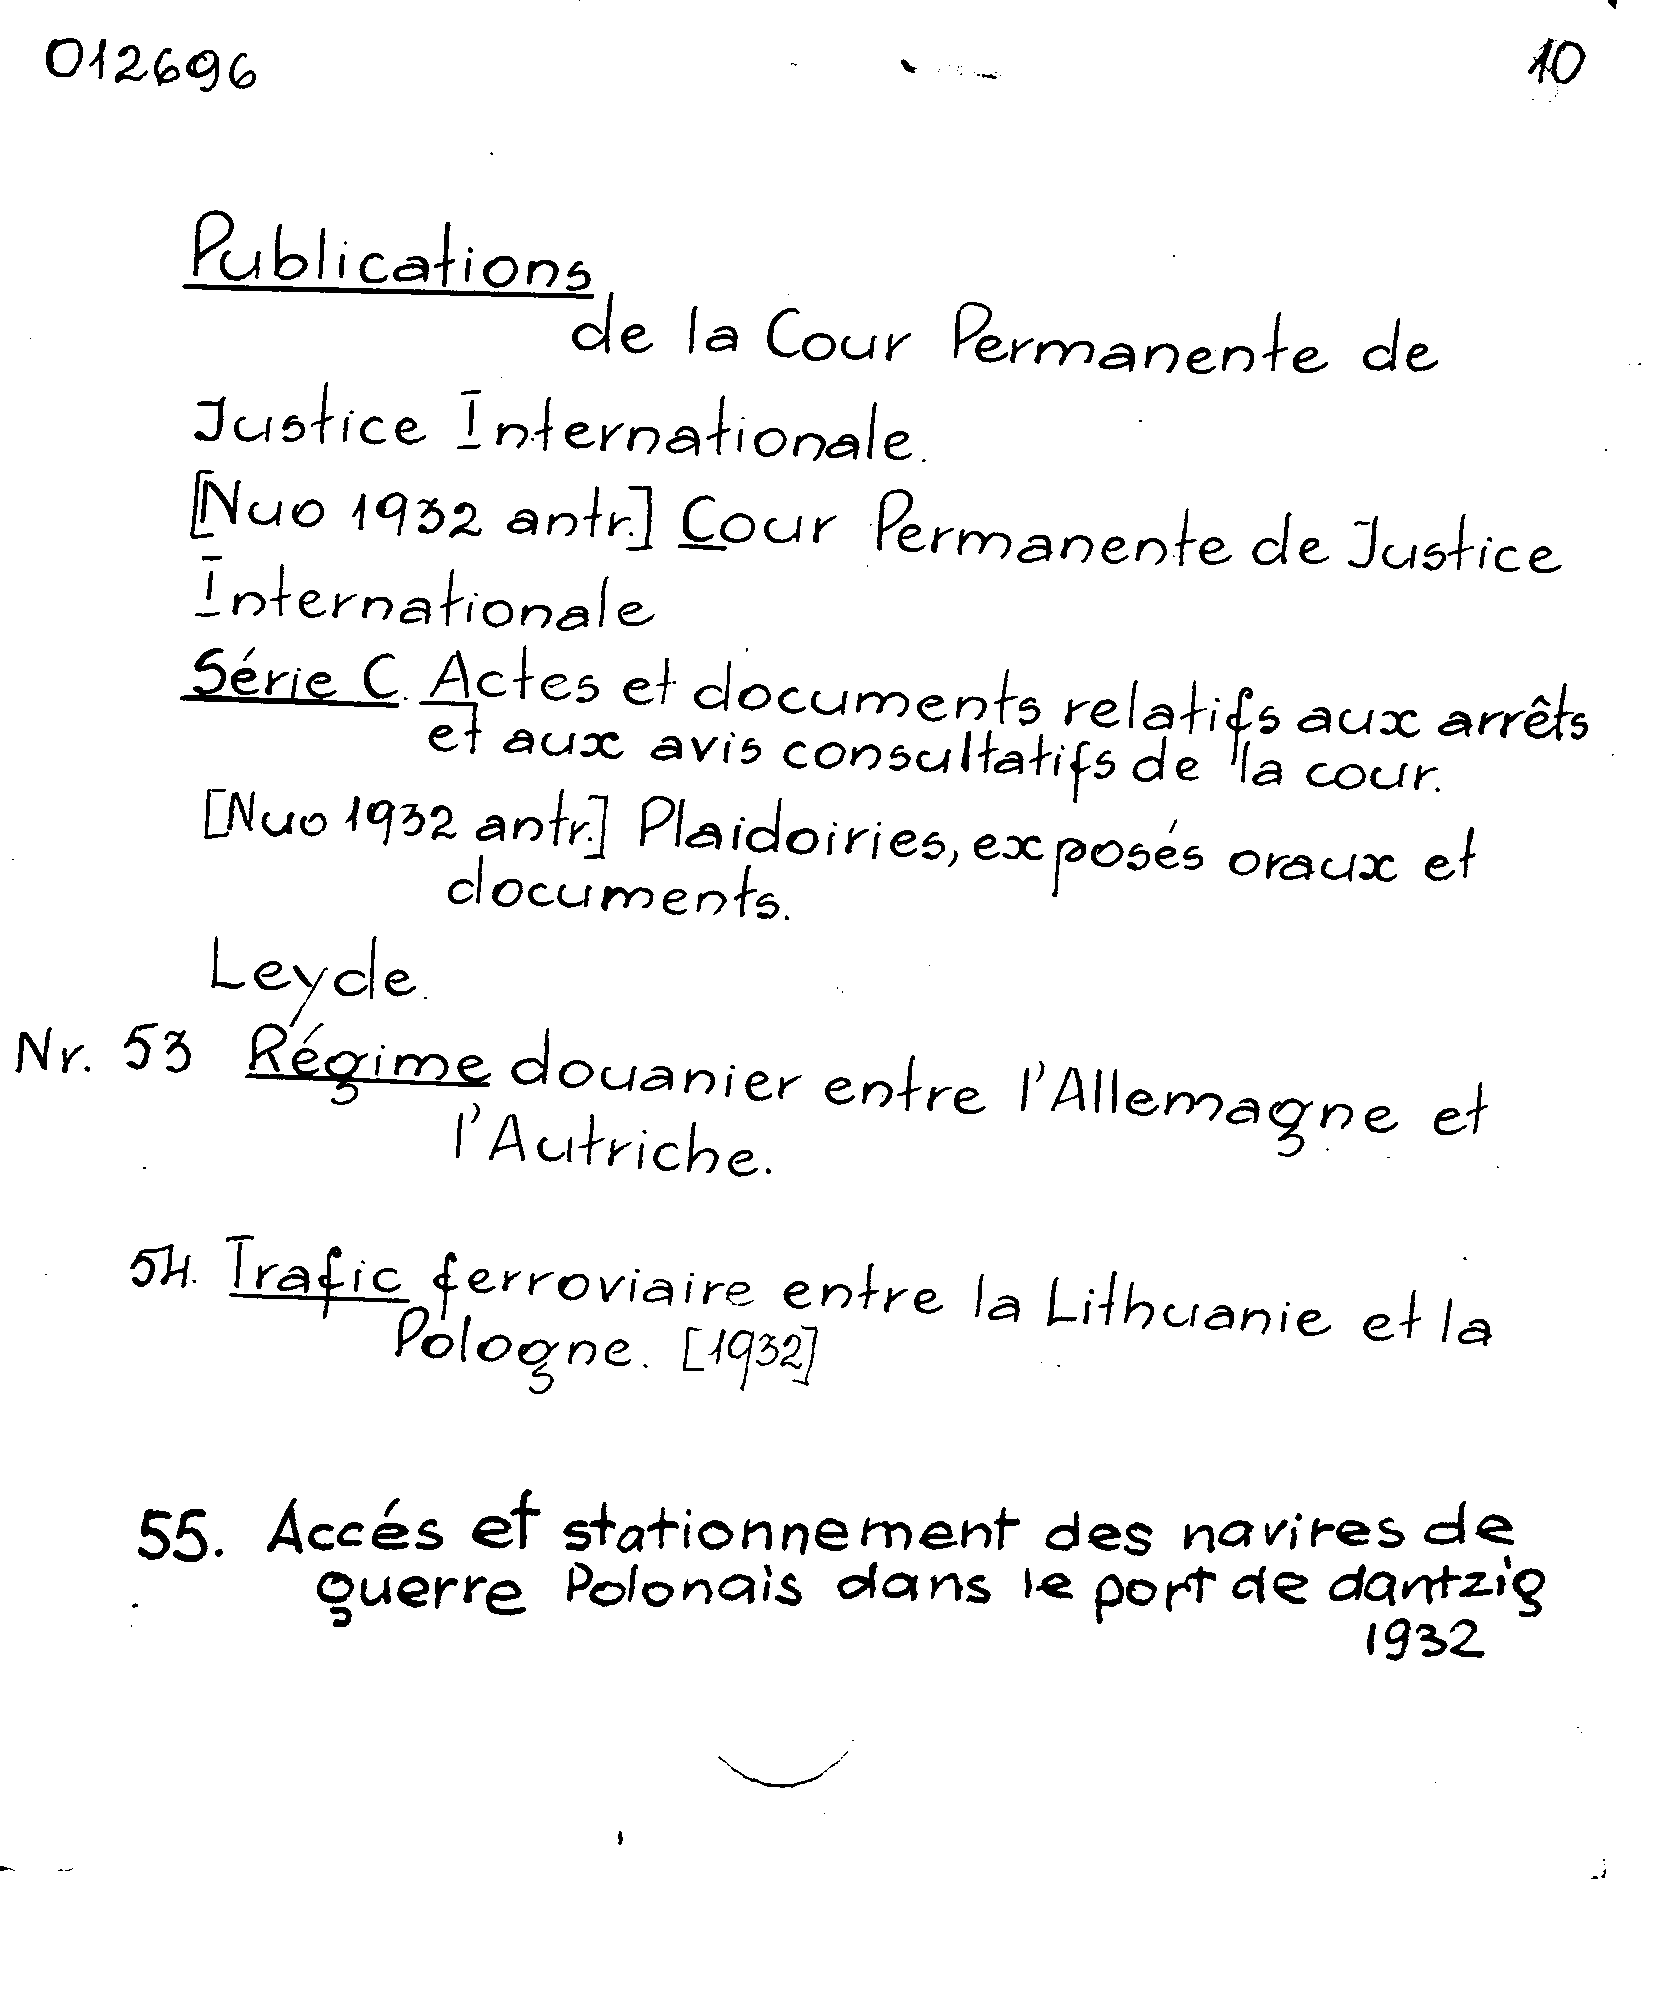 012696 10
Publications
de la Cour Permanente de
Justice Internationale.
[Nuo 1932 antr.] Cour Permanente de Justice
Internationale
Série C. Actes et documents relatifs aux arrêts
et aux avis consultatifs de la cour.
[Nuo 1932 antr.] Plaidoiries, exposés oraux et
documents.
Leyde.
Nr. 53 Régime douanier entre l'Allemagne et
l'Autriche.
54. Trafic ferroviaire entre la Lithuanie et la
Pologne. [1932]
55. Accés et stationnement des navires de
guerre Polonais dans le port de dantzig
1932